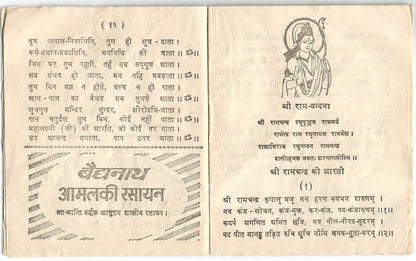 ( ११ )
तुम पाताल-निवासिनि, तुम ही शुभ-दाता ।
कर्म-प्रभाव-प्रकाशिनि, भवनिधि की त्राता ॥ॐ॥
जिस घर तुम रहती, तहँ सब सद्गुण आता ।
सब संभव हो जाता, मन नहिं घबड़ाता ॥ॐ॥
तुम बिन यज्ञ न होते, वस्त्र न हो राता ।
खान-पान का वैभव सब तुमसे आता ॥ॐ॥
शुभगुण मन्दिर सुन्दर, क्षीरोदधि-जाता ।
रत्न चतुर्दश तुम बिन, कोई नहीं पाता ॥ॐ॥
महालक्ष्मी (जी) की आरति, जो कोई नर गाता ।
उर आनन्द समाता, पाप उतर जाता ॥ॐ॥
बैद्यनाथ
आमलकी रसायन
श्री राम-वन्दना
श्री रामचन्द्र रघुपुङ्गव राजवर्य
राजेन्द्र राम रघुनायक राघवेश ।
राजाधिराज रघुनन्दन रामचन्द्र
श्री रामचन्द्र की आरती
(१)
श्री रामचन्द्र कृपालु भजु मन हरण भवभय दारुणम् ।
नव कंज-लोचन, कंज-मुख, कर-कंज, पद-कंजारुणम् ॥१॥
कंदर्प अगणित अमित छबि, नव नील-नीरद-सुन्दरम् ।
पट पीत मानहु तड़ित रुचि शुचि नौमि जनक-सुता-वरम् ॥२॥